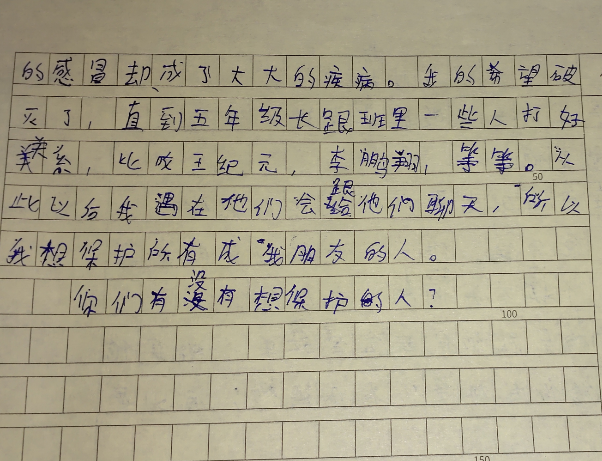 的感冒却成了大大的疾病。我的希望破
灭了，直到五年级长跟班里一些人打好
关系，比哎王纪元，李鹏翔，等等。从
此以后我遇在他们会跟他们聊天，所以
我想保护所有成我朋友的人。
50
你们有没有想保护的人？
100
150